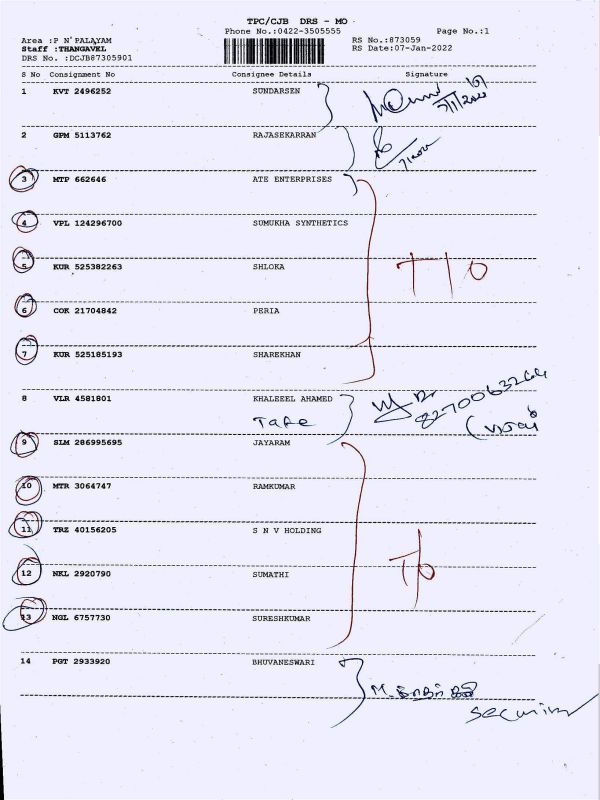 TPC/CJB DRS - MO
Phone No.:0422-3505555 Page No.:1
Area :P N PALAYAM RS No.:873059
Staff :THANGAVEL RS Date:07-Jan-2022
DRS No. :DCJB87305901
S No Consignment No Consignee Details Signature
1 KVT 2496252 SUNDARSEN
7/1/2022
2 GPM 5113762 RAJASEKARRAN
3 MTP 662646 ATE ENTERPRISES
4 VPL 124296700 SUMUKHA SYNTHETICS
5 KUR 525382263 SHLOKA
T/O
6 COK 21704842 PERIA
7 KUR 525185193 SHAREKHAN
8 VLR 4581801 KHALEEEL AHAMED
8270063264
9 SLM 286995695 JAYARAM
10 MTR 3064747 RAMKUMAR
11 TRZ 40156205 S N V HOLDING
12 NKL 2920790 SUMATHI
T/O
13 NGL 6757730 SURESHKUMAR
14 PGT 2933920 BHUVANESWARI
security